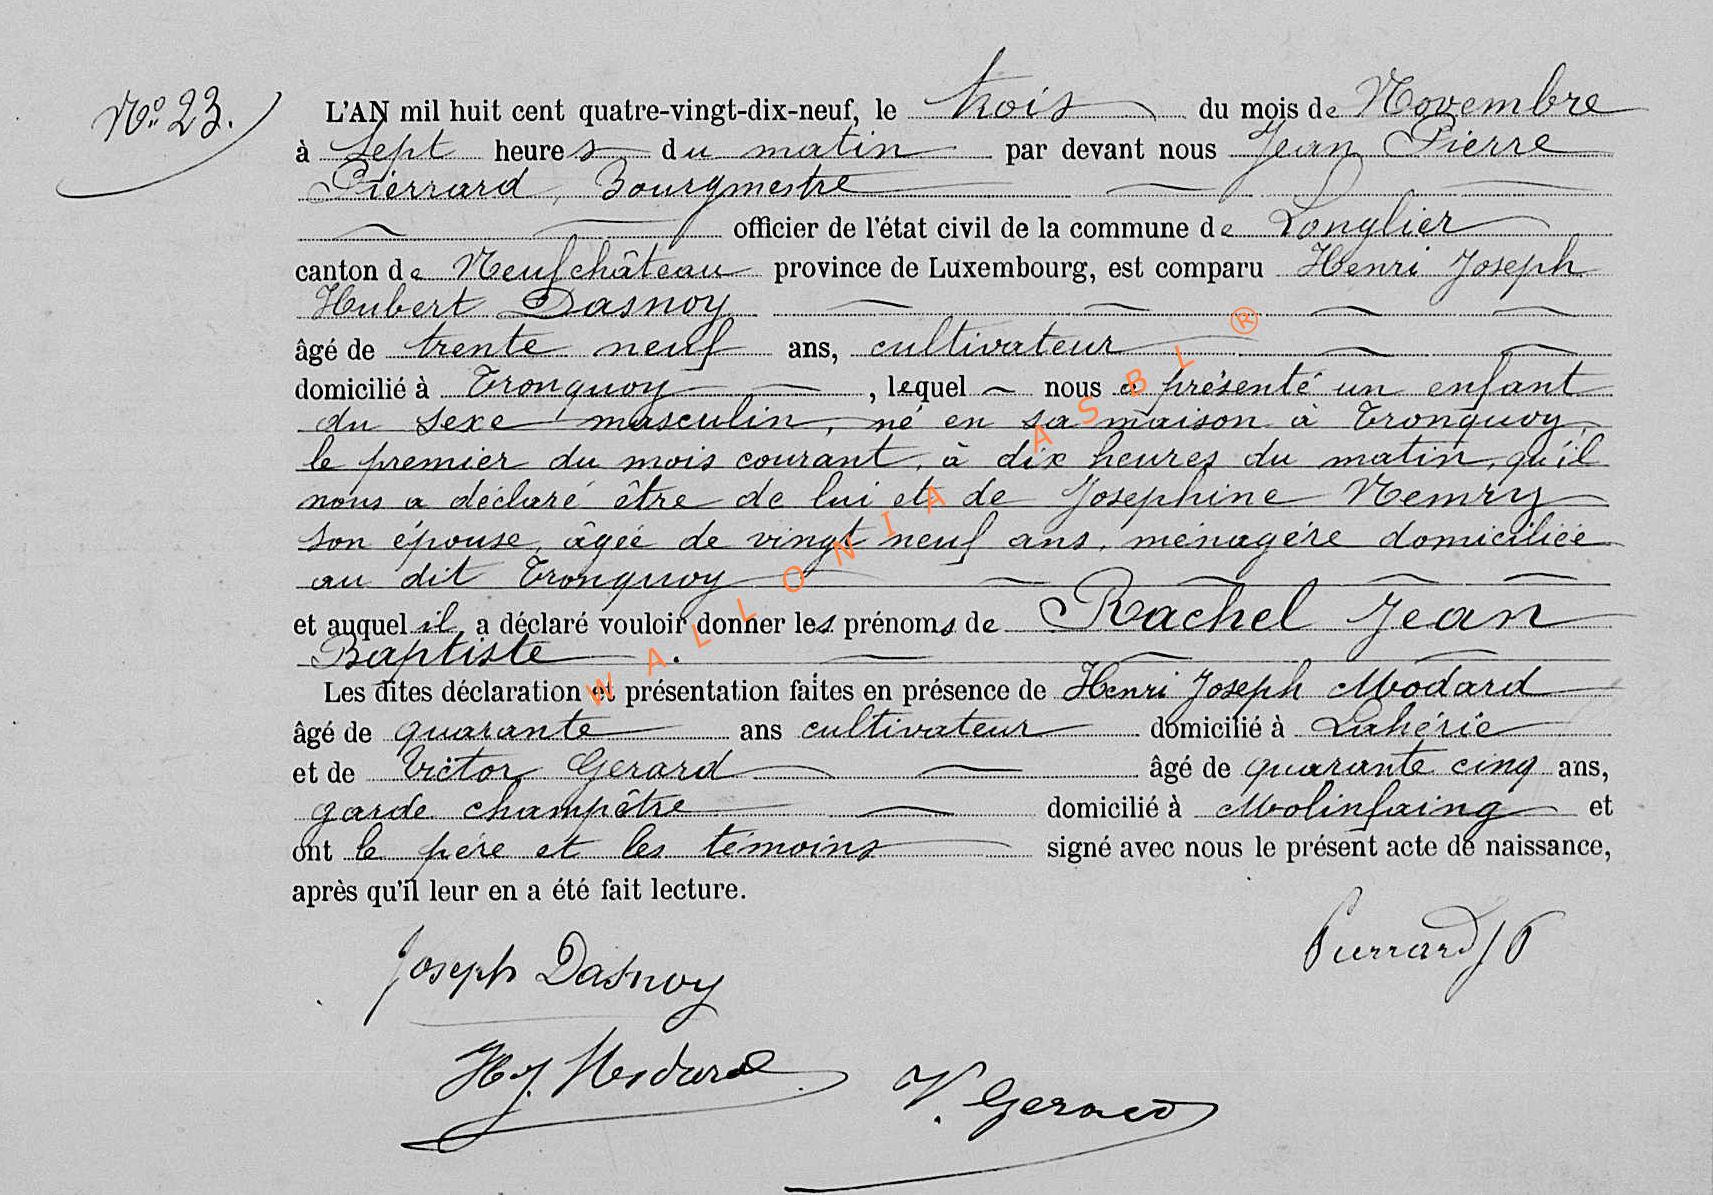 No. 23.
L'AN mil huit cent quatre-vingt-dix-neuf, le trois du mois de Novembre
à sept heures du matin par devant nous Jean Pierre
Pierrard, Bourgmestre
officier de l'état civil de la commune de Longlier
canton de Neufchâteau province de Luxembourg, est comparu Henri Joseph
Hubert Dasnoy
âgé de trente neuf ans, cultivateur
domicilié à Tronquoy, lequel nous a présenté un enfant
du sexe masculin, né en sa maison à Tronquoy,
le premier du mois courant, à dix heures du matin, qu'il
nous a déclaré être de lui et de Josephine Nemry
son épouse, âgée de vingt neuf ans, ménagère domiciliée
au dit Tronquoy
et auquel il a déclaré vouloir donner les prénoms de Rachel Jean
Baptiste.
Les dites déclaration et présentation faites en présence de Henri Joseph Modard
âgé de quarante ans cultivateur domicilié à Lahérie
et de Victor Gerard âgé de quarante cinq ans,
garde champêtre domicilié à Molinfaing et
ont le père et les témoins signé avec nous le présent acte de naissance,
après qu'il leur en a été fait lecture.
Pierrard J P
Joseph Dasnoy
H J. Modard
V. Gerard
WALLONIA ASBL ®